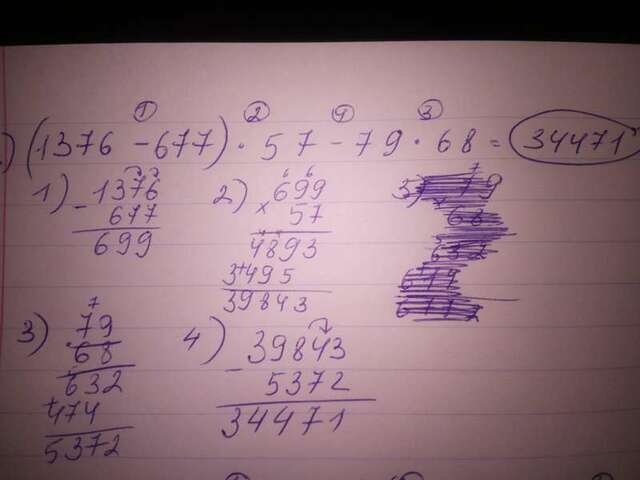 ① ② ④ ③
) (1376 - 677) · 57 - 79 · 68 = 34471
1) - 1376
677
699
2) 6 6
× 699
57
4893
+ 3495
39843
3) 7
79
68
632
+ 474
5372
4) - 39843
5372
34471